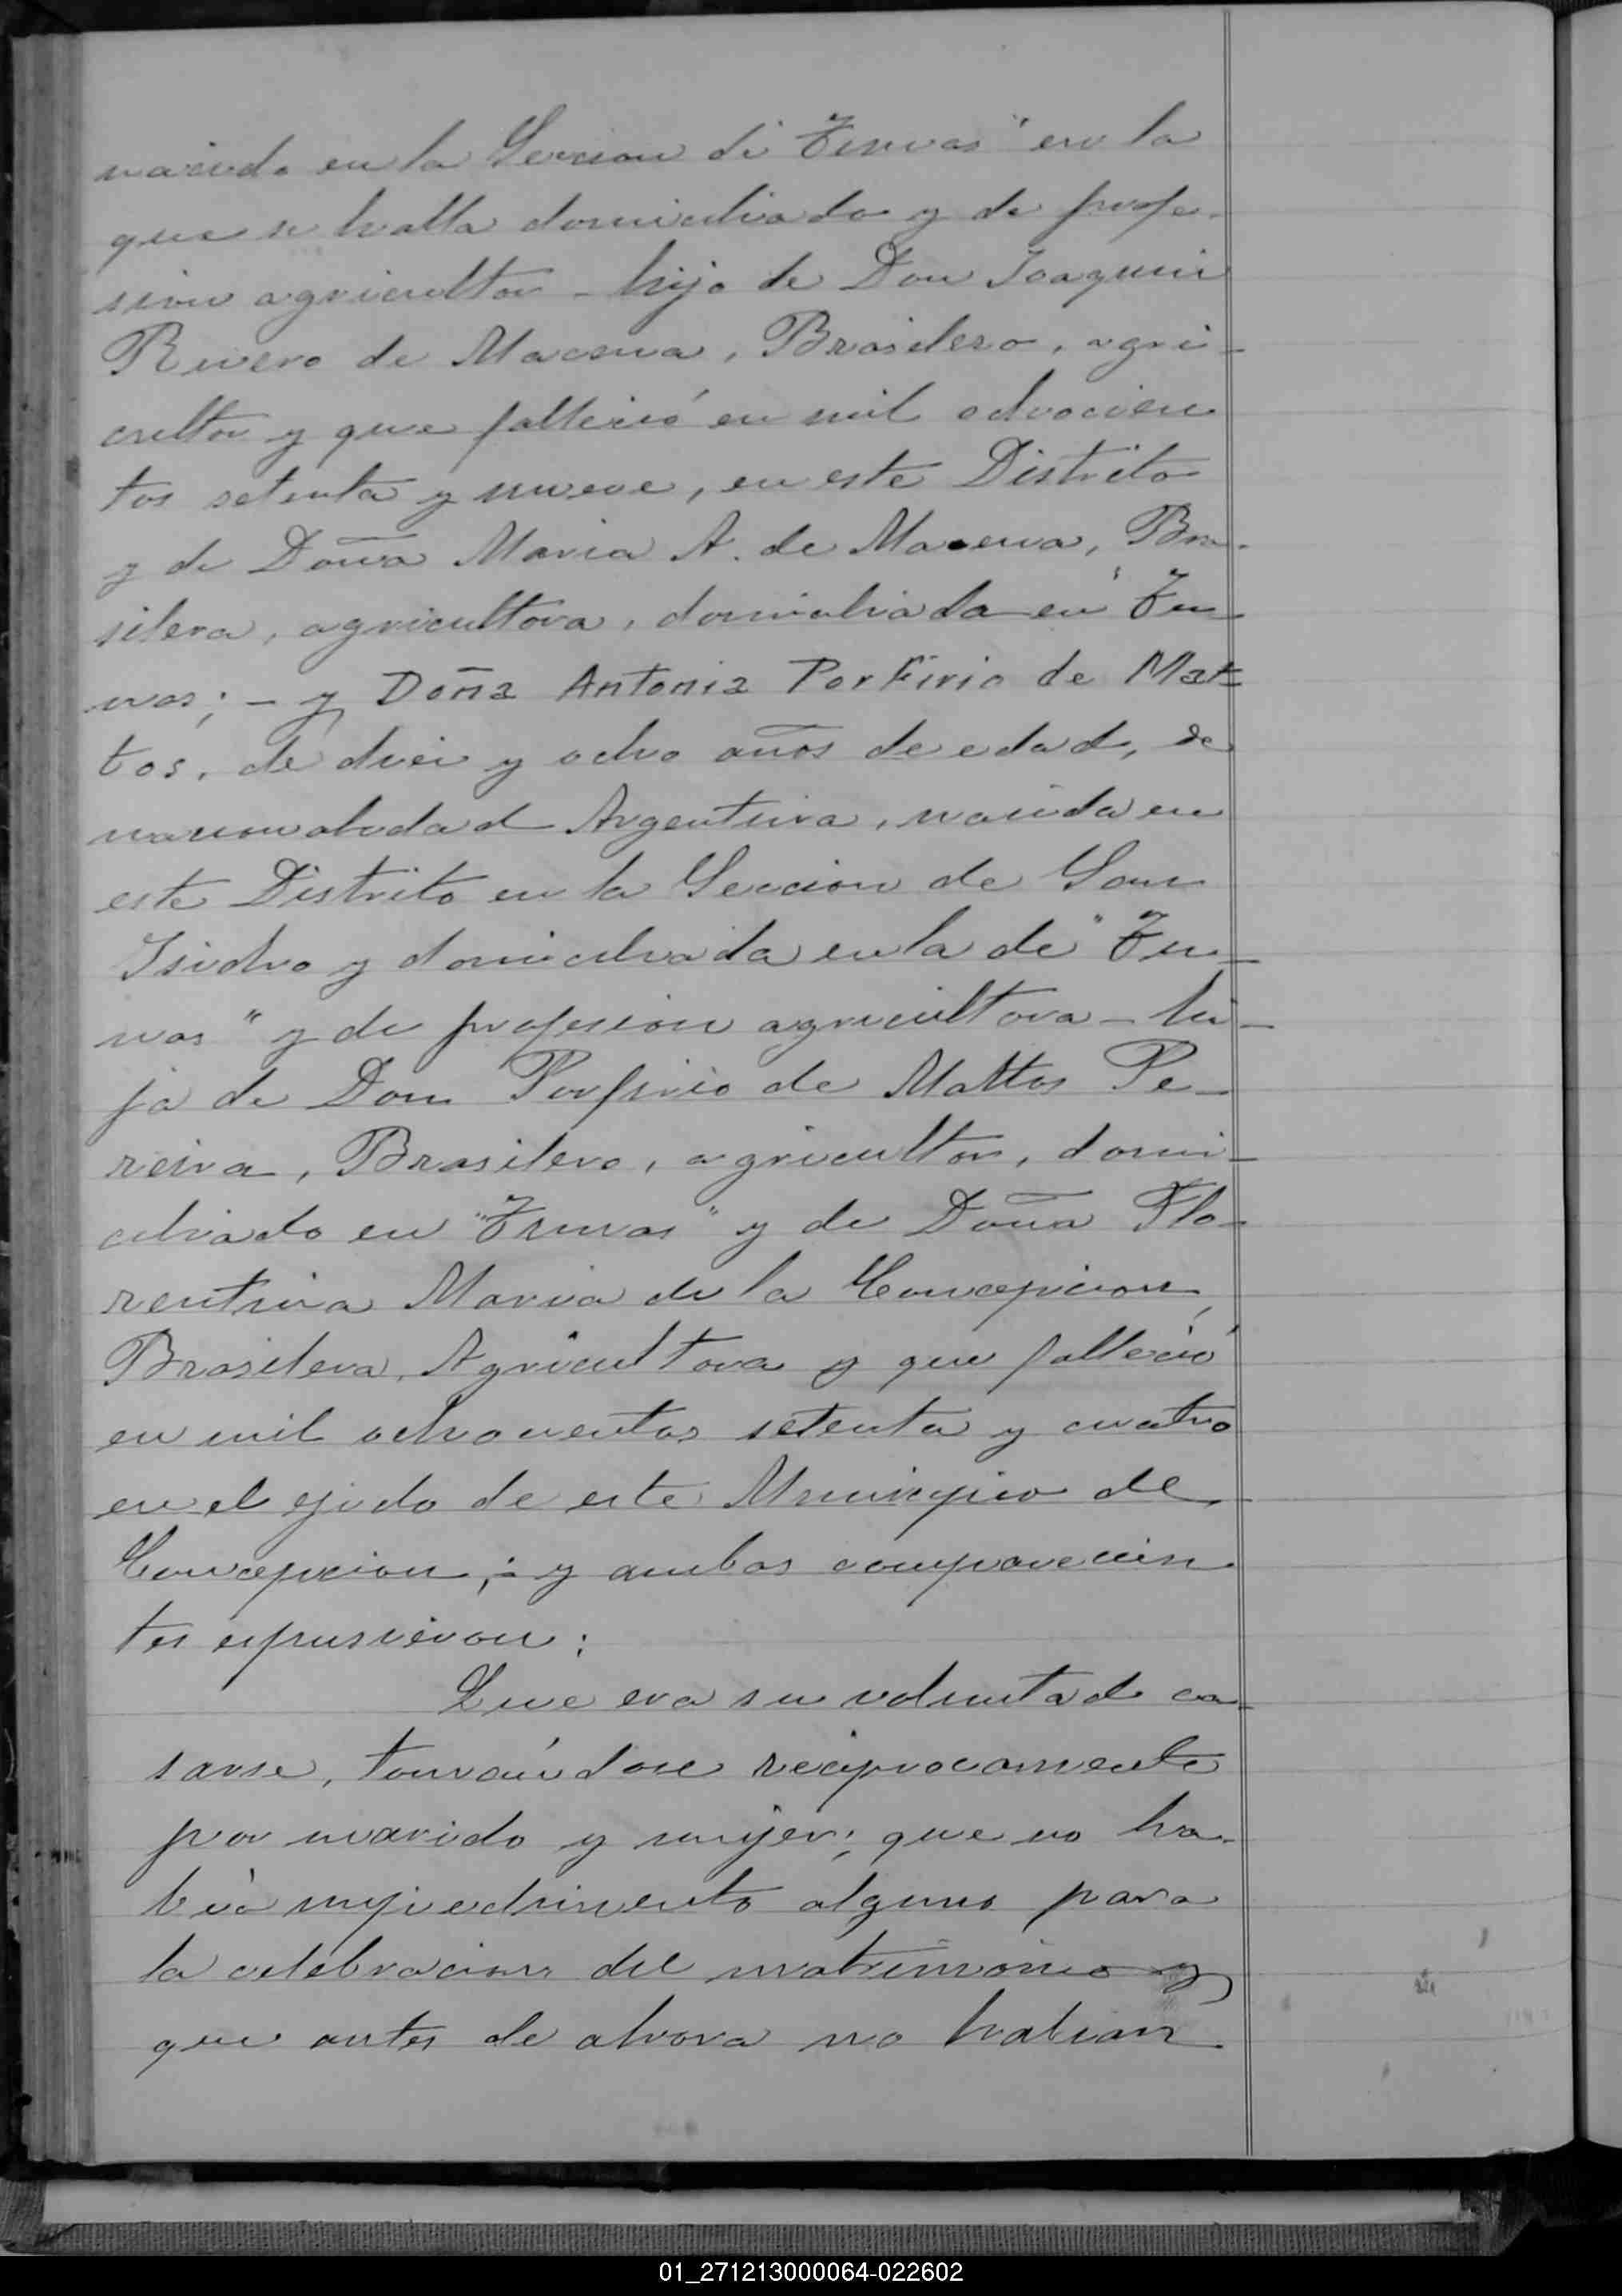 nacido en la Seccion de "Tunas" en la
que se halla domiciliado y de profe-
sion agricultor - hijo de Don Joaquin
Rivero de Macena, Brasilero, agri-
cultor y que falleció en mil ochocien
tos setenta y nueve, en este Distrito
y de Doña Maria A. de Macena, Bra-
silera, agricultora, domiciliada en "Tu-
nas; - y Doña Antonia Porfirio de Mat-
tos, de diez y ocho años de edad, de
nacionalidad Argentina, nacida en
este Distrito en la Seccion de San
Isidro y domiciliada en la de "Tu-
nas" y de profesion agricultora - hi-
ja de Don Porfirio de Mattos Pe-
reira, Brasilero, agricultor, domi-
ciliado en "Tunas" y de Doña Flo-
rentina Maria de la Concepcion,
Brasilera, Agricultora y que falleció
en mil ochocientos setenta y cuatro
en el ejido de este Municipio de
Concepcion; - y ambos comparecien
tes espusieron:
Que era su voluntad ca-
sarse, tomándose reciprocamente
por marido y mujer; que no ha-
bía impedimento alguno para
la celebracion del matrimonio y
que antes de ahora no habian
01_271213000064-022602